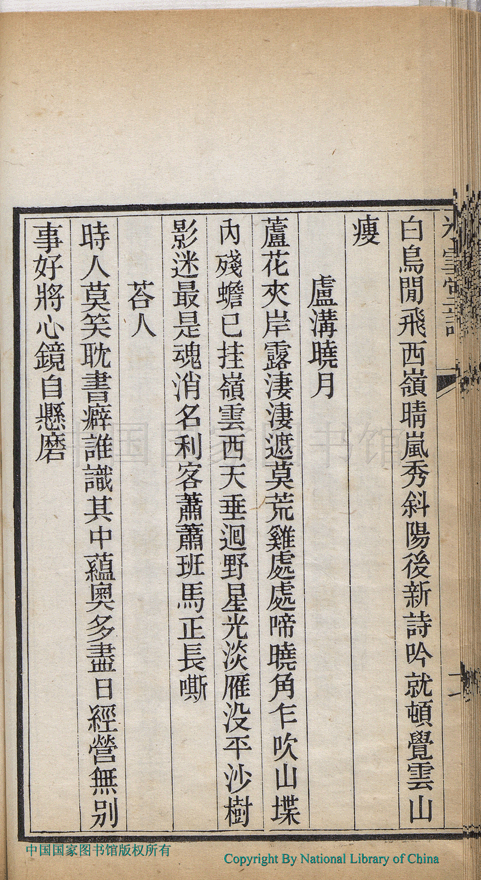 白鳥閒飛西嶺晴嵐秀斜陽後新詩吟就頓覺雲山
瘦
盧溝曉月
蘆花夾岸露淒淒遮莫荒雞處處啼曉角乍吹山堞
內殘蟾已挂嶺雲西天垂迥野星光淡雁没平沙樹
影迷最是魂消名利客蕭蕭班馬正長嘶
荅人
時人莫笑耽書癖誰識其中蘊奧多盡日經營無別
事好將心鏡自懸磨
中国国家图书馆版权所有
Copyright By National Library of China